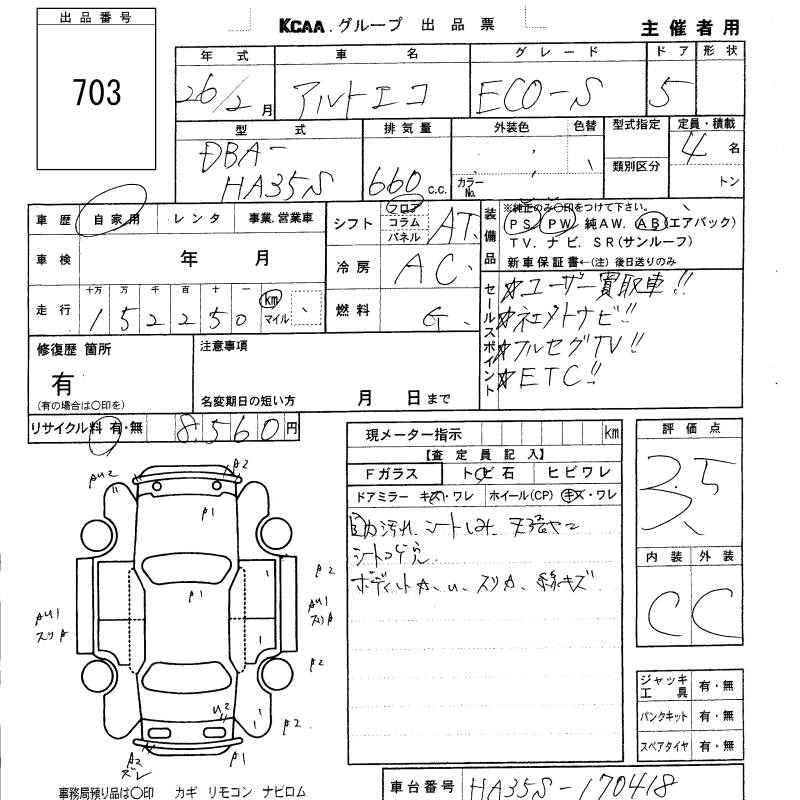 出品番号
703
KCAA.グループ 出品票
主催者用
年式 車名 グレード ドア 形状
26/2月 アルトエコ ECO-S 5
型式 排気量 外装色 色替 型式指定 定員・積載
DBA-HA35S 660 c.c. カラーNo. 類別区分 4名 トン
車歴 自家用 レンタ 事業.営業車
車検 年 月
走行 十万 万 千 百 十 一
152250 km マイル
シフト フロア コラム パネル AT
冷房 AC
燃料 G
装備品
※純正のみ〇印をつけて下さい。
PS PW 純AW. AB(エアバック)
TV. ナビ. SR(サンルーフ)
新車保証書←(注)後日送りのみ
セールスポイント
☆ユーザー買取車!!
☆社外メモリナビ!!
☆フルセグTV!!
☆ETC!!
修復歴 箇所
有
(有の場合は〇印を)
注意事項
名変期日の短い方 月 日まで
リサイクル料 有・無 8,560円
現メーター指示 km
【査定員記入】
Fガラス トビ石 ヒビワレ
ドアミラー キズ・ワレ ホイール(CP) キズ・ワレ
内汚れ シートしみ
シートコゲ穴
ボディ
評価点
3.5
内装 外装
C C
ジャッキ工具 有・無
パンクキット 有・無
スペアタイヤ 有・無
AU2
A2
A1
A2
A1
AU1
スリA
AU1
スリA
A2
U2
A2
A2
ズレ
A1
事務局預り品は〇印 カギ リモコン ナビロム
車台番号 HA35S-170418